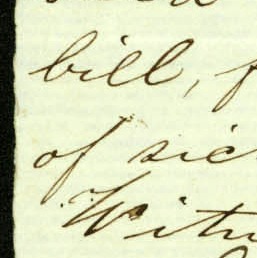 bill, f
of sic
Witn